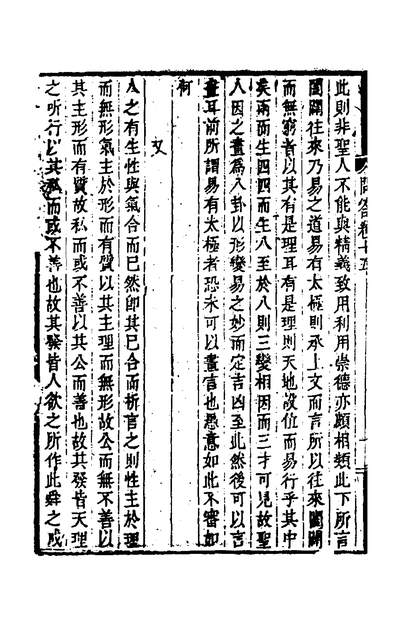 此則非聖人不能與精義致用利用崇德亦顯相類此下所言
闔闢往來乃易之道易有太極則承上文而言所以往來闔闢
而無窮者以其有是理耳有是理則天地設位而易行乎其中
矣兩而生四四而生八至於八則三變相因而三才可見故聖
人因之畫為八卦以形變易之妙而定吉凶至此然後可以言
書耳前所謂易有太極者恐未可以畫言也愚意如此不審如
何
又
人之有生性與氣合而已然即其已合而析言之則性主於理
而無形氣主於形而有質以其主理而無形故公而無不善以
其主形而有質故私而或不善以其公而善也故其發皆天理
之所行以其私而或不善也故其發皆人欲之所作此舜之戒